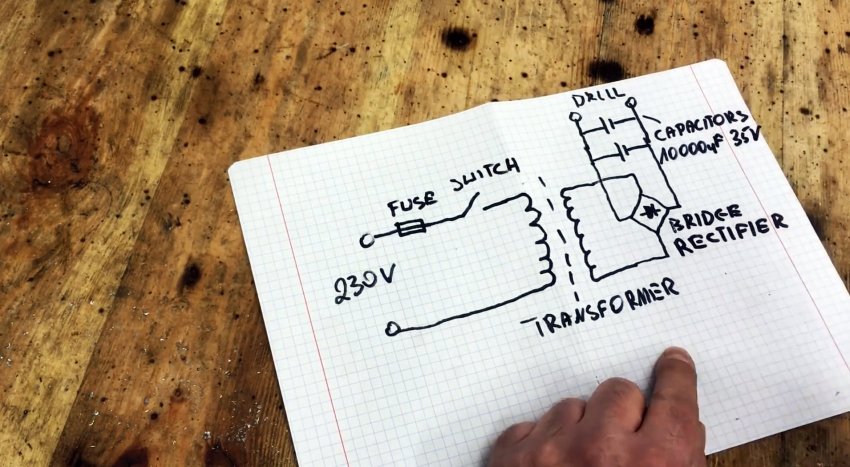 DRILL
CAPACITORS
10000µF 35V
SWITCH
FUSE
BRIDGE
RECTIFIER
230V
TRANSFORMER